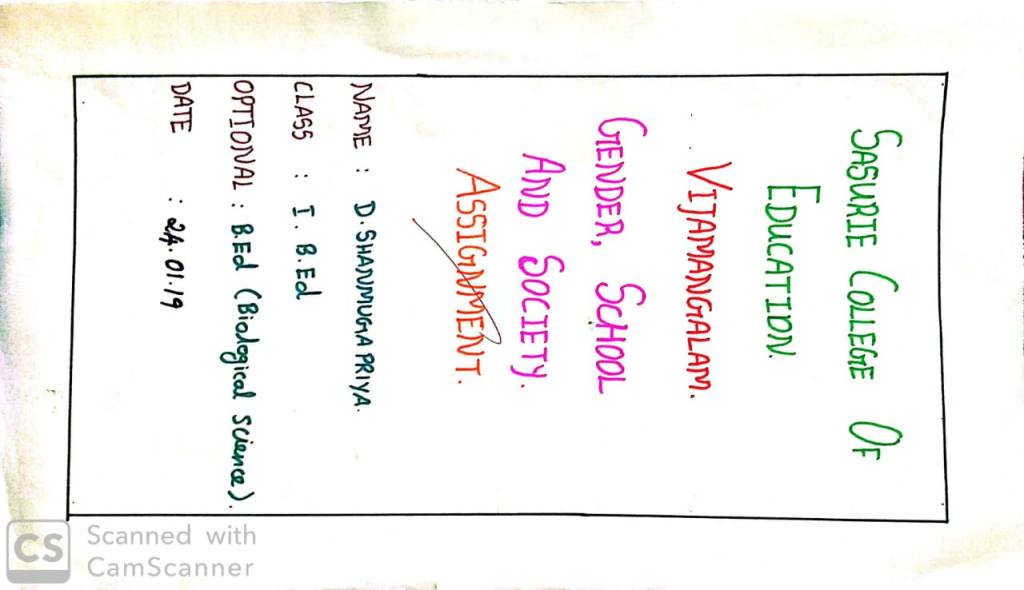 SASURIE COLLEGE OF
EDUCATION.
VIJAMANGALAM.
GENDER, SCHOOL
AND SOCIETY.
ASSIGNMENT.
NAME : D. SHANMUGA PRIYA.
CLASS : I. B.Ed
OPTIONAL : B.Ed (Biological science).
DATE : 24.01.19
CS Scanned with
CamScanner